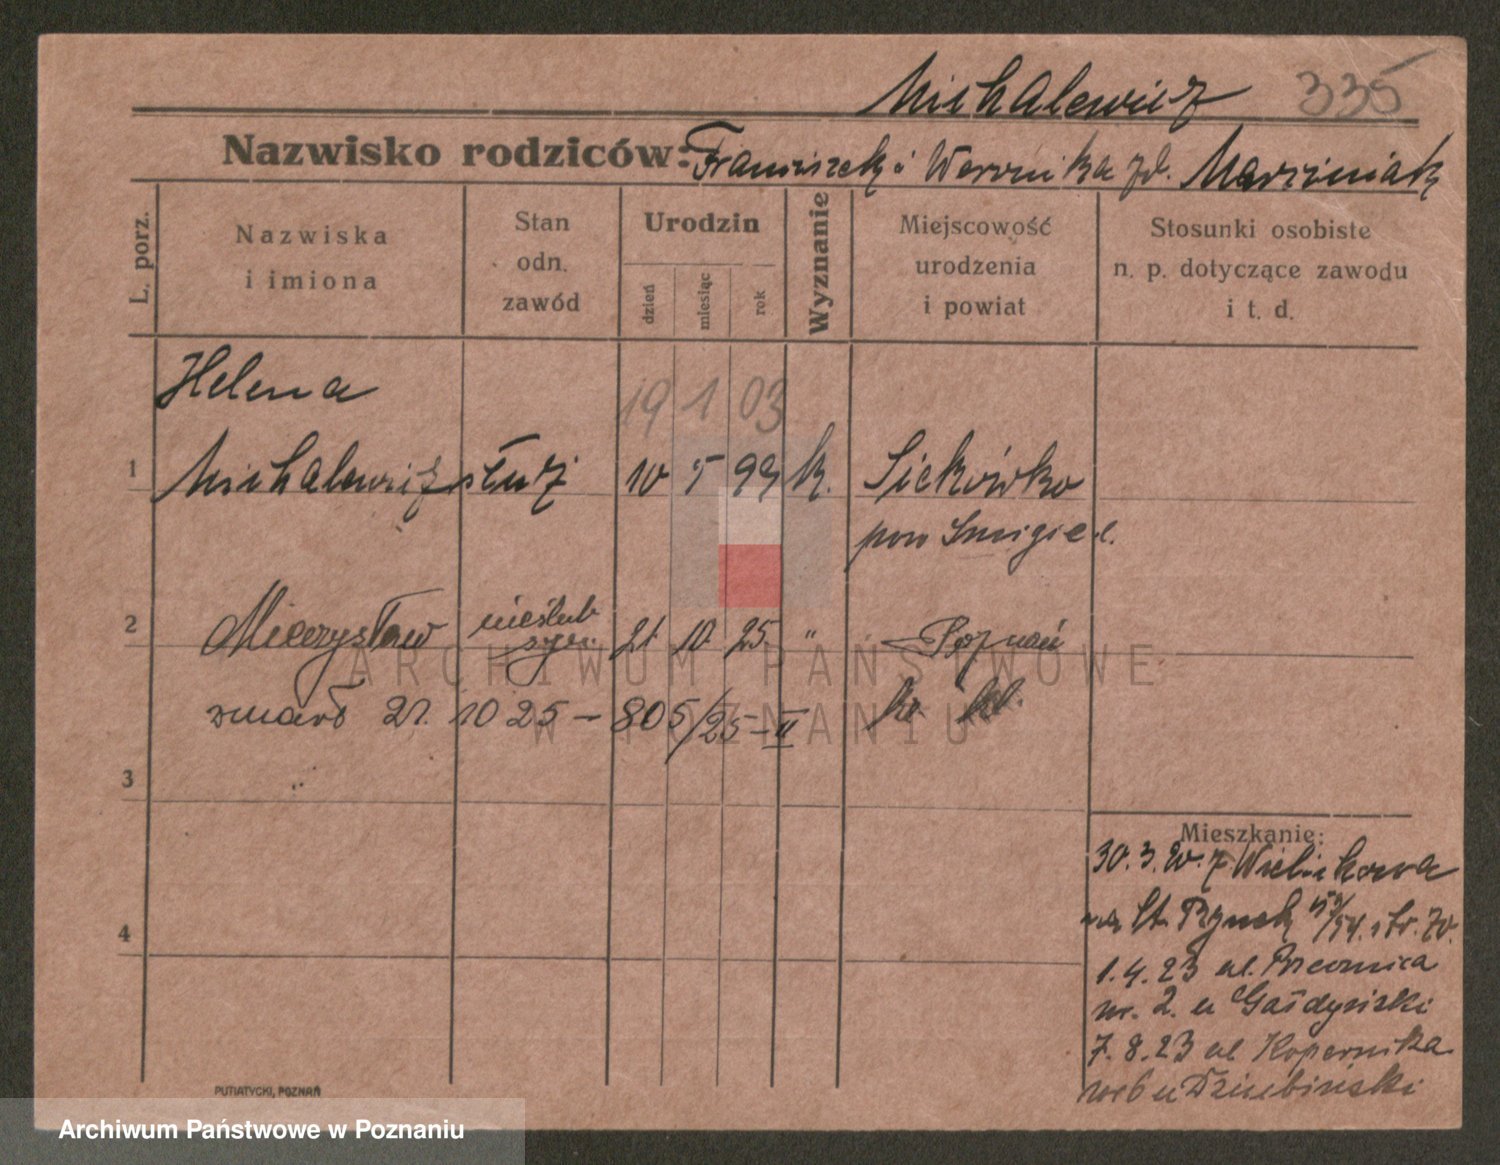 Michalewicz 335
Nazwisko rodziców: Franciszek i Weronika zd. Marciniak
L. porz.
Nazwiska
i imiona
Stan
odn.
zawód
Urodzin
dzień
miesiąc
rok
Wyznanie
Miejscowość
urodzenia
i powiat
Stosunki osobiste
n. p. dotyczące zawodu
i t. d.
Helena 19 1 03
1 Michalewicz służ 10 5 99 k. Siekówko
pow Smigiel.
2 Mieczysław nieślub
syn. 21. 10. 25. " Poznań
zmarł 21. 10 25 – 805/25 – II
3
4
Mieszkanie:
30. 3. 20. z Wielichowa
na St. Rynek 53/54. str. 70.
1. 4. 23 ul.
nr. 2. u Gałdyński
7. 8. 23 ul Kopernika
nr 6 u Dziubiński
PUTIATYCKI, POZNAŃ
ARCHIWUM PAŃSTWOWE
W POZNANIU
Archiwum Państwowe w Poznaniu